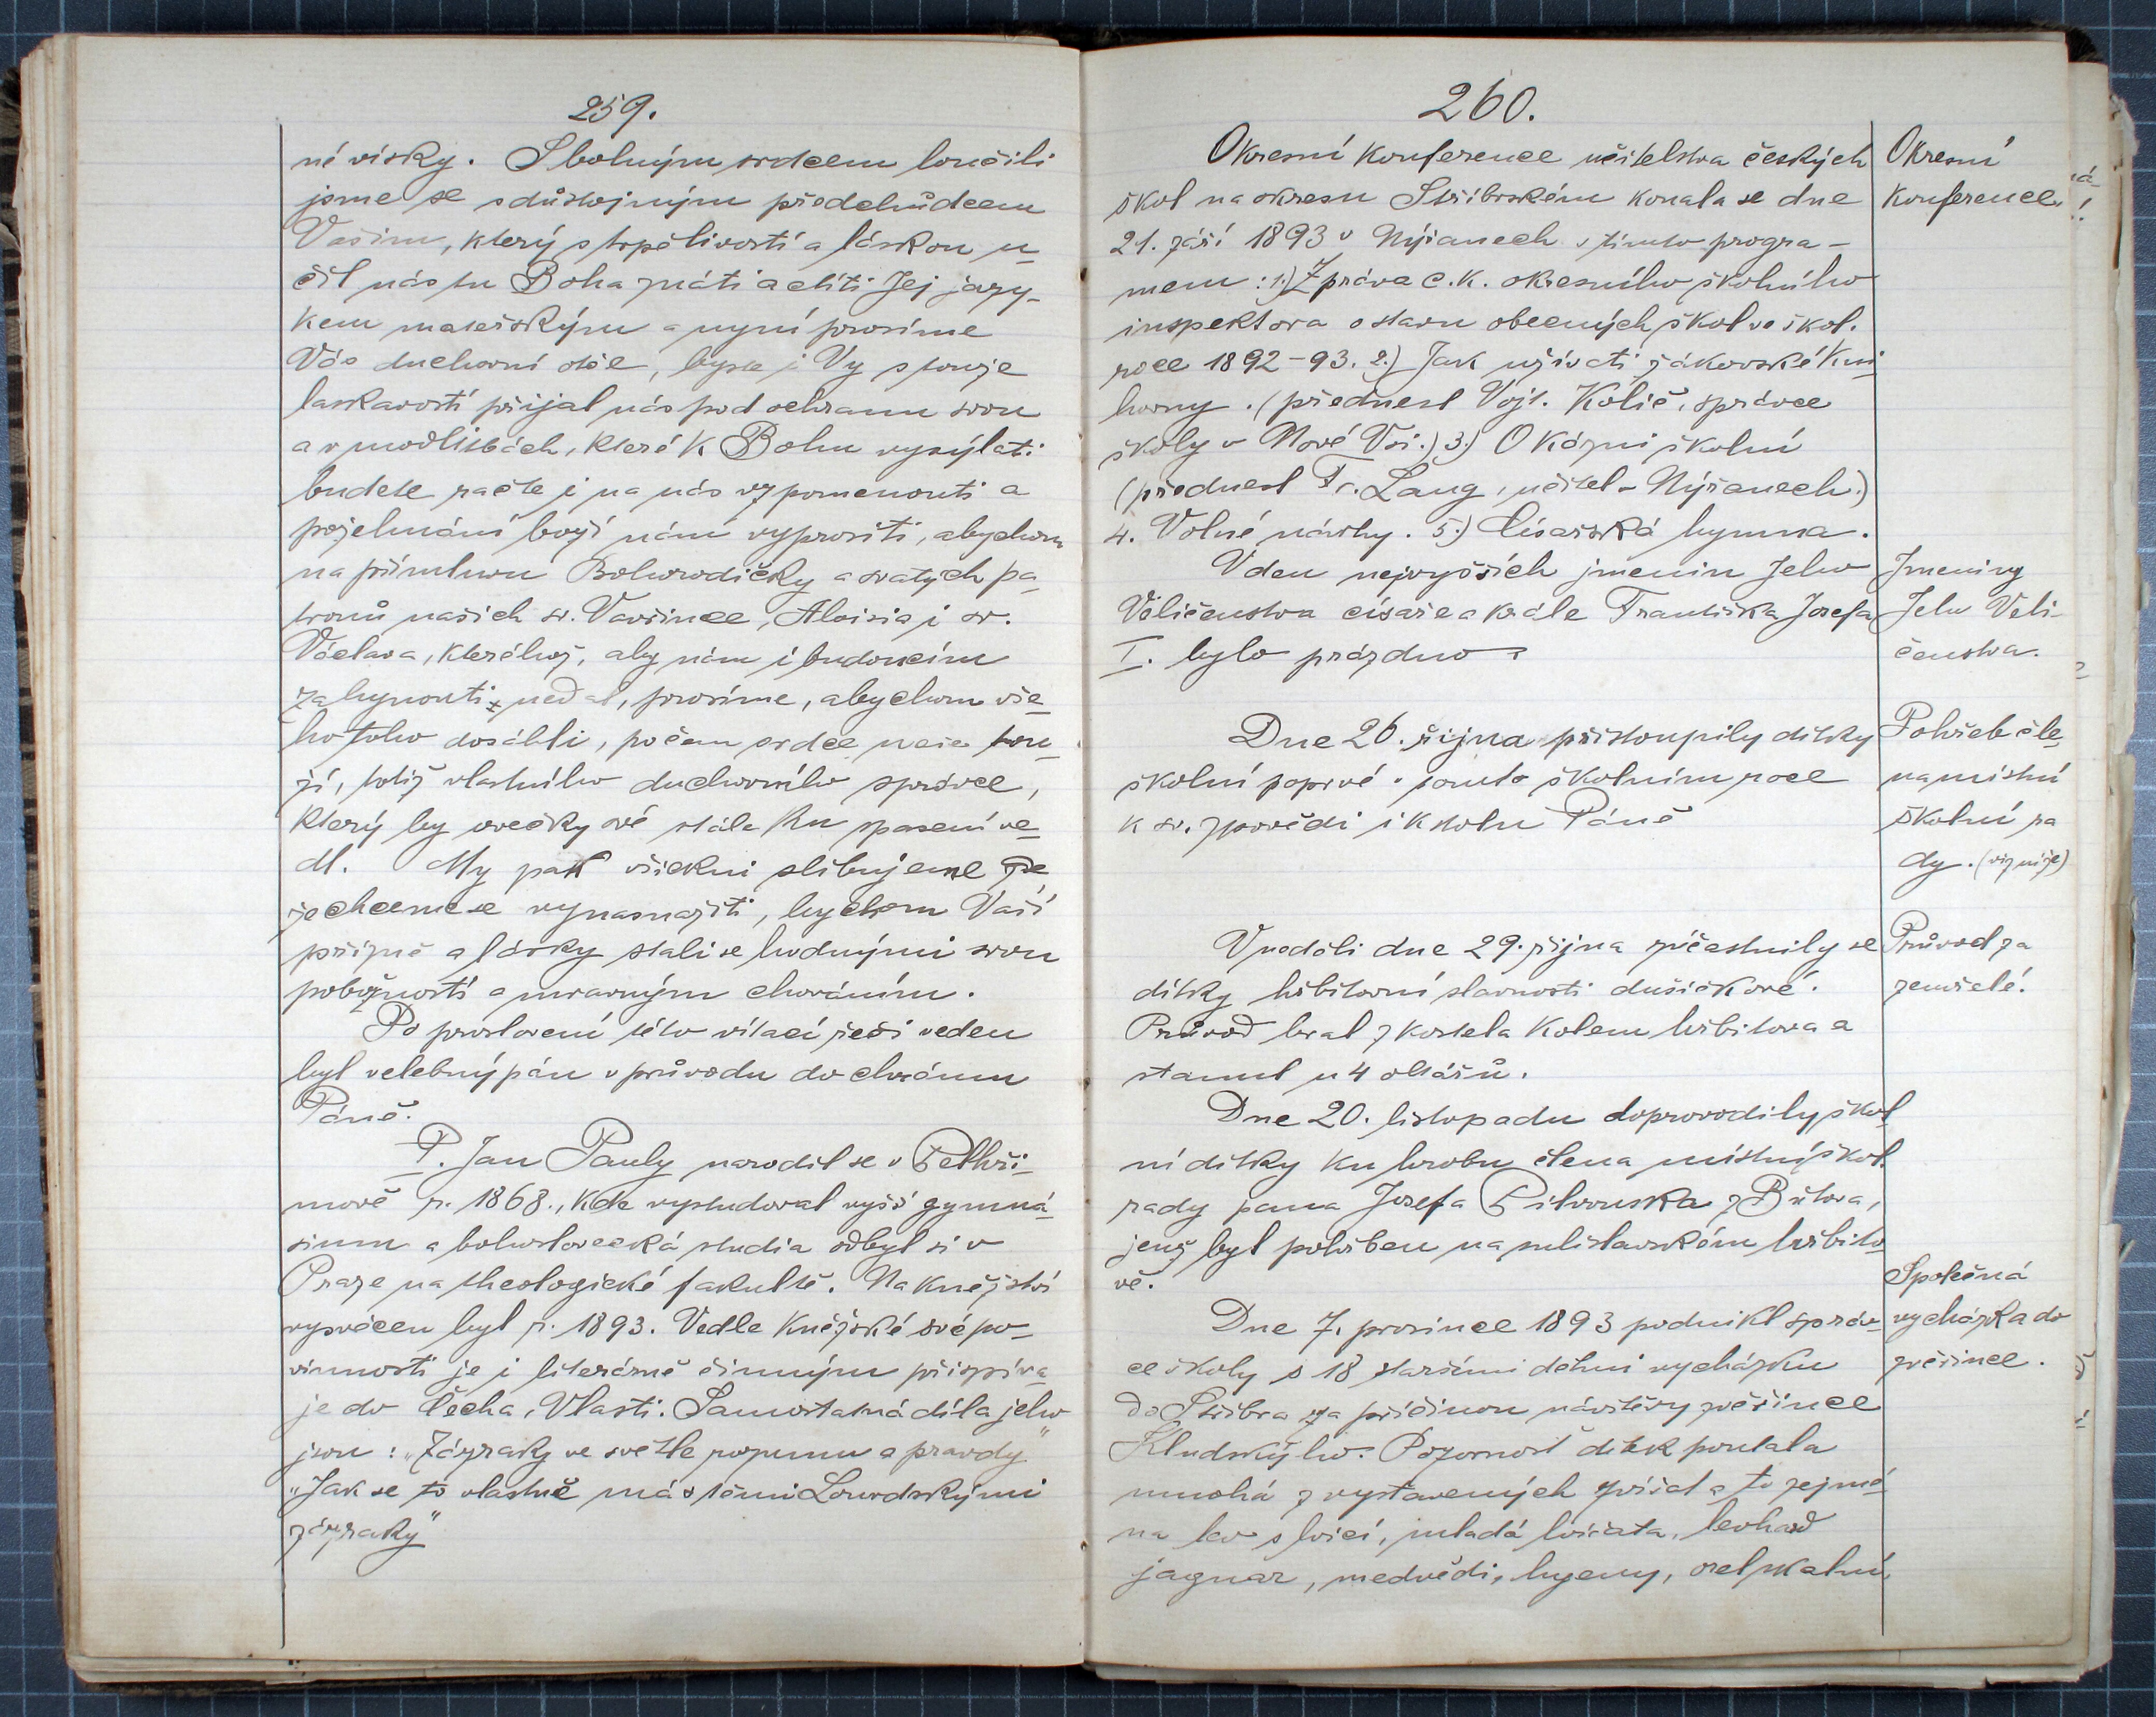 259.
né vísky. S bolným srdcem loučili
jsme se s důstojným předchůdcem
Vašim, který s trpělivostí a láskou u-
čil nás tu Boha znáti a ctíti Jej jazy-
kem mateřským a nyní prosíme
Vás duchovní otče, byste i Vy s touže
laskavostí přijal nás pod ochranu svou
a v modlitbách, které k Bohu vysýlati
budete račte i na nás vzpomenouti a
požehnání boží nám vyprositi, abychom
na přímluvu Bohorodičky a svatých pa-
tronů našich sv. Vavřince, Aloisia i sv.
Václava, kteréhož, aby nám i budoucím
zahynouti nedal, prosíme, abychom vše-
ho toho dosáhli, po čem srdce naše tou-
ží, totiž vlastního duchovního správce,
který by ovečky své stále ku spasení ve-
dl. My pak všickni slibujeme
že chceme se vynasnažiti, bychom Vaší
přízně a lásky stali se hodnými svou
pobožností a mravným chováním.
Po proslovení této vítací řeči veden
byl velebný pán v průvodu do chrámu
Páně.
P. Jan Pauly narodil se v Pelhři-
mově r. 1868., kde vystudoval vyšší gymná-
sium a bohoslovecká studia odbyl si v
Praze na theologické fakultě. Na kněžství
vysvěcen byl r. 1893. Vedle kněžské své po-
vinnosti je i literárně činným přispíva-
je do Čecha, Vlasti. Samostatná díla jeho
jsou: „Zázraky ve světle rozumu a pravdy"
„Jak se to vlastně má s těmi Lourdskými
zázraky"
260.
Okresní konference učitelstva českých
škol na okresu Stříbrském konala se dne
21. září 1893 v Nýřanech s tímto progra-
mem: 1.) Zpráva c. k. okresního školního
inspektora o stavu obecných škol ve škol.
roce 1892-93. 2.) Jak užívati žákovské kni-
hovny. (přednesl Vojt. Količ, správce
školy v Nové Vsi.) 3.) O kázni školní
(přednesl Fr. Lang, učitel v Nýřanech.)
4. Volné návrhy. 5.) Císařská hymna.
V den nejvyšších jmenin Jeho
Veličenstva císaře a krále Františka Josefa
I. bylo prázdno.
Dne 26. října přistoupily dítky
školní poprvé v tomto školním roce
k sv. zpovědi i k stolu Páně
V neděli dne 29. října súčastnily se
dítky hřbitovní slavnosti dušičkové.
Průvod bral z kostela kolem hřbitova a
stanul u 4 oltářů.
Dne 20. listopadu doprovodily škol-
ní dítky ku hrobu člena místní škol.
rady pana Josefa Pitrouska z Bítova,
jenž byl pohřben na sulislavském hřbito-
vě.
Dne 7. prosince 1893 podnikl správ-
ce školy s 18 staršími dětmi vycházku
do Stříbra za příčinou návštěvy zvěřince
Kludského. Pozornost dítek poutala
mnohá z vystavených zvířat a to zejmé-
na lev s lvicí, mladá lvíčata, levhard
jaguar, medvědi, hyeny, orel skalní,
Okresní
konference.
Jmeniny
Jeho Veli-
čenstva.
Pohřeb čle-
na místní
školní ra
dy. (viz níže)
Průvod za
zemřelé.
Společná
vycházka do
zvěřince.